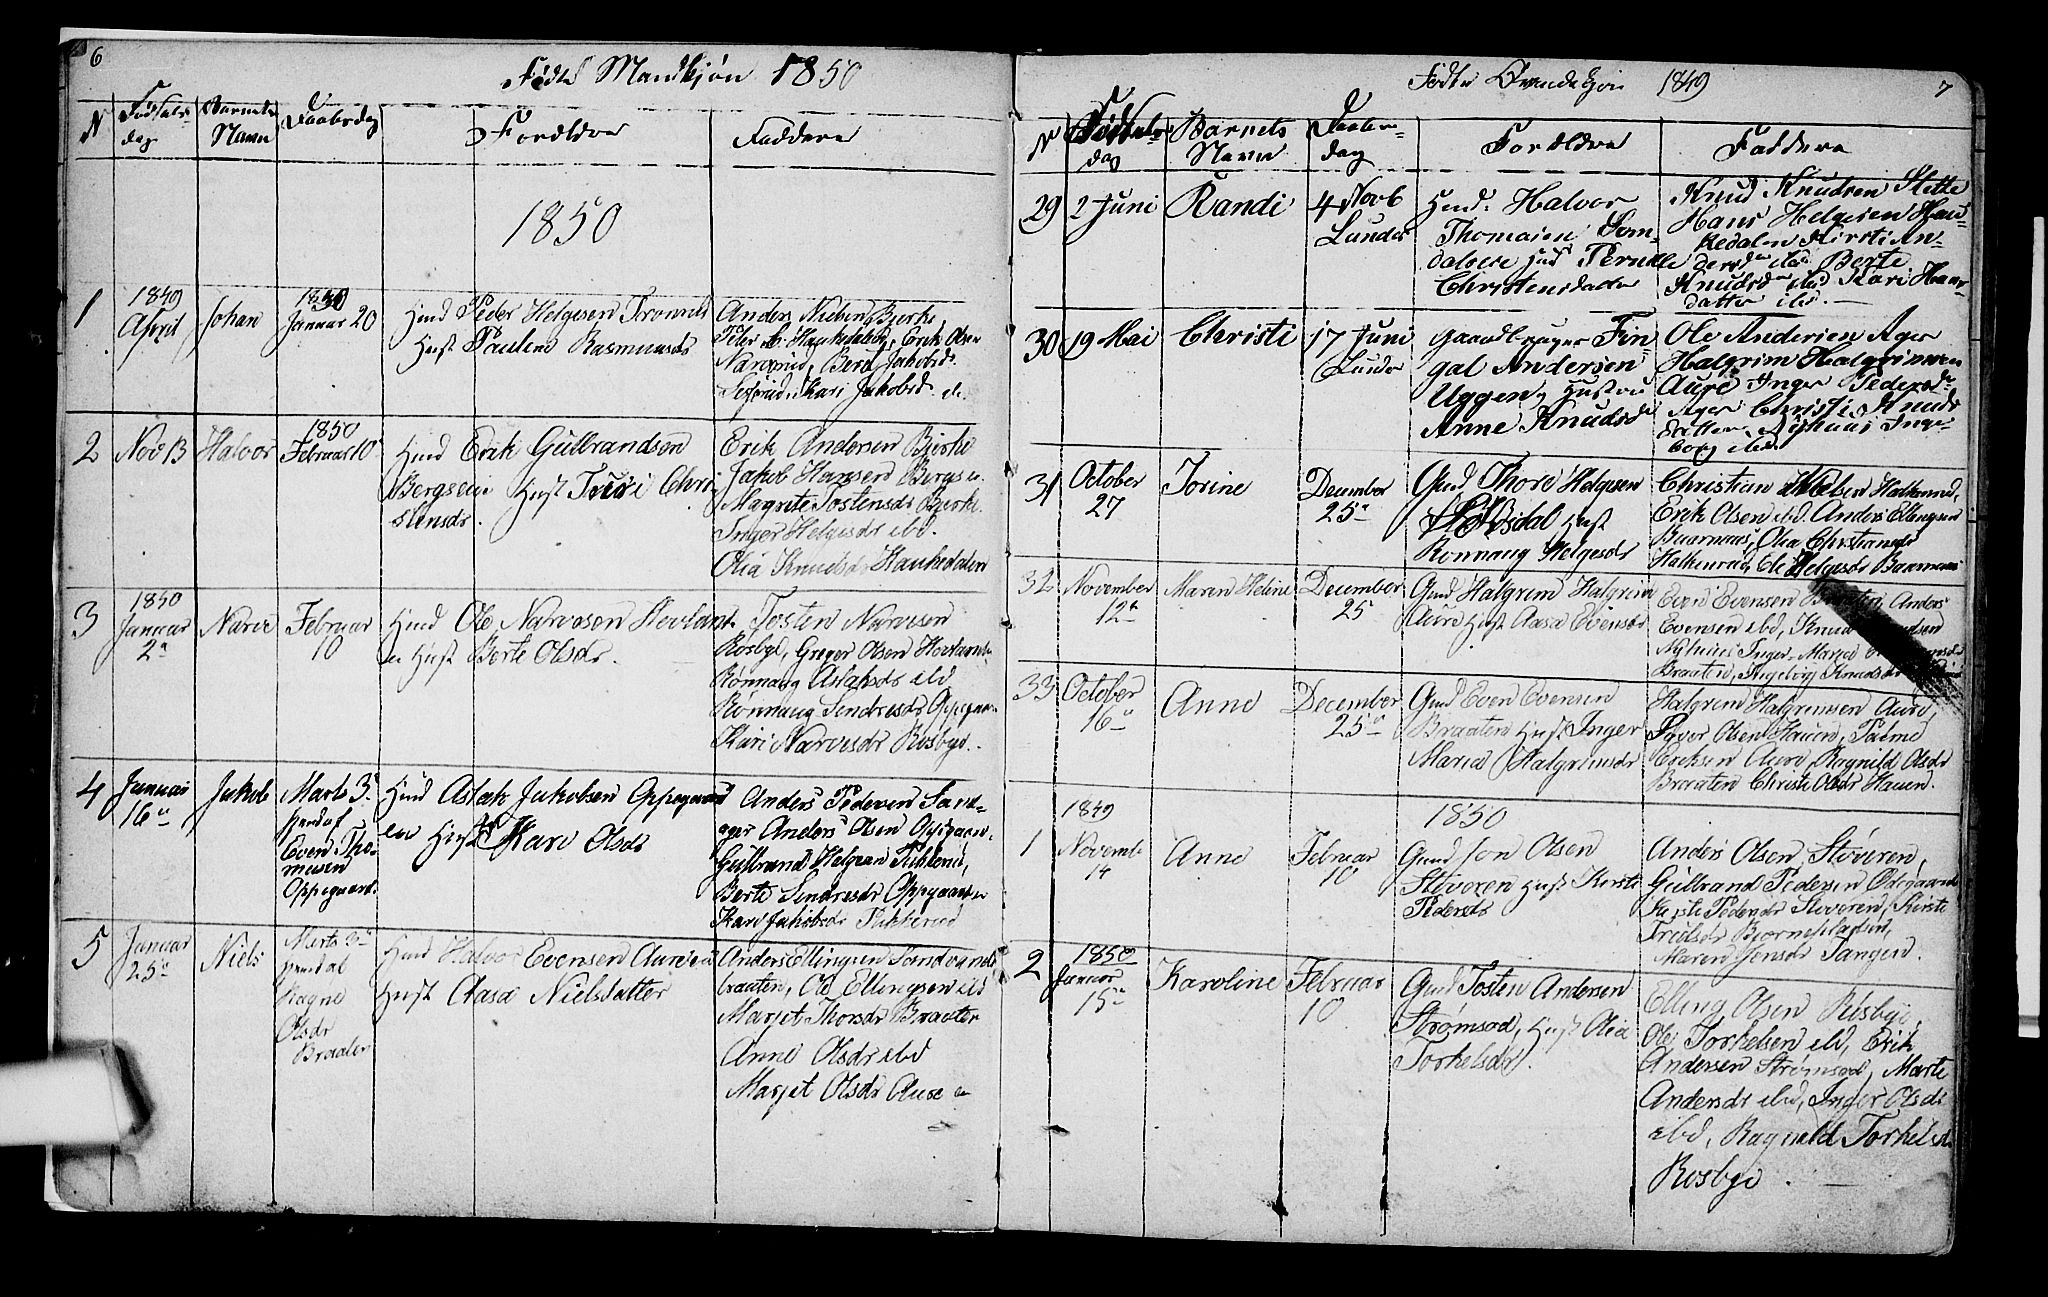 6
Fødte Mandkjøn 1850
N Fødsels- dag Barnets Navn Daabsdag Forældre Faddere
1850
1 1849 April Johan 1850 Januar 20
Hmd Peder Helgesen
Hust Pauline Rasmusds
Anders Nielsen Bjerke,
Erik Olsen
Berte Jakobsd.
Kari Jakobsd. e.
2 Nov 13 Halvor 1850 Februar 10
Hmd Erik Gulbrandsen
Bergseie Hust Turi Chri
stensdr.
Erik Andersen Bjerke
Jakob Hansen Bergse.
Magrite Tostensdr Bjerke.
Inger Helgesdr ebd.
Olia Knudsdr Haukedalen
3 1850 Januar 2a Narve Februar 10
Hmd Ole Narvesen Hovland-
en Hust Berte Olsdr.
Tosten Narvesen
Rosbye, Greger Olsen Hovlande
Rönnaug Aslaksdr ebd
Rönnaug Sendresdr Oppegaar.
Kari Narvesdr Rosbye.
4 Januar 16a Jakob Marts 3.
Hmd Aslak Jakobsen Oppegaard
en Hust Kari Olsdr
Even Tho-
mesen
Oppegaard.
Anders Pedersen Sand-
ager Anders Olsen Oppigaar.
Gulbrand Helgesen
Berte Sendresdr Oppegaarden
Kari Jakobsdr
5 Januar 25a Niels Marts 3a
Hmd Halvor Evensen Aureeie
Hust Aasa Nielsdatter
Ragne
Olsdr
Braaten
Anders Ellingsen Sandvands
braaten, Ole Ellingsen ebd
Marjet Thorsdr Braaten
Anne Olsdr ebd
Marjet Olsdr Aure e
Fødte Qvindekjøn 1849 7
N Fødsels- dag Barnets Navn Daabs- dag Forældre Faddere
29 2 Juni Randi 4 Novb Lunder
Hmd. Halvor
Thomasen
Hust Pernille
Christensdatter
Knud Knudsen Slette
Hans Helgesen Hau-
kedalen Kirsti An-
dersdr ebd Berte
Knudsdr ebd Kari Hans-
datter ebd.
30 19 Mai Christi 17 Juni Lunder
Gaardbruger Fin-
gal Andersen
Uggen, Hustru
Anne Knudsdr
Ole Andersen Ager
Halgrim Halgrimsen
Aure Inger Pedersdr
Ager Christi Knuds
datter Nyhuus Inge-
borg ebd.
31 October 27 Torine December 25a
Gmd Thore Helgesen
Hust
Ronnaug Helgesdr
Christian Nielsen Halkinrud,
Erik Olsen ebd. Anders Ellingsen
Buarnaas, Olia Christiansdr
Halkinrud, Eli Helgesdr Buarnaas
32 November 12a Maren Heline December 25
Gmd Halgrim Halgrims
Aure Hust Aasa Evensdr
Even Evensen Braaten Anders
Evensen ebd, Knud Knudsen
Nyhuus Inger Maria
Braaten, Ingeborg Knudsdr
33 October 16a Anne December 25a
Gmd Even Evensen
Braaten Hust Inger
Maria Halgrimsdr
Halgrim Halgrimsen Aure,
Paver Olsen Hauen, Palme
Eriksen Aure Ragnild Olsdr
Braaten Christi Olsdr Hauen.
1850
1 1849 Novemb 14 Anne Februar 10
Gmd Jon Olsen
Støveren Hust Kirsti
Pedersdr
Anders Olsen Støveren,
Gulbrand Pedersen Ødegaarde
Kirsti Pedersdr Støveren, Kirsti
Troelsdr
Maren Jensdr Tangen.
2 1850 Januar 15a Karoline Februar 10
Gmd Tosten Andersen
Strømsod, Hust Olia
Torkelsdr.
Elling Olsen Rosbye,
Ole Torkelsen ebd, Erik
Andersen Strømsod, Marte
Andersdr ebd, Inger Olsdr
ebd, Ragnild Torkelsd.
Rosbye.